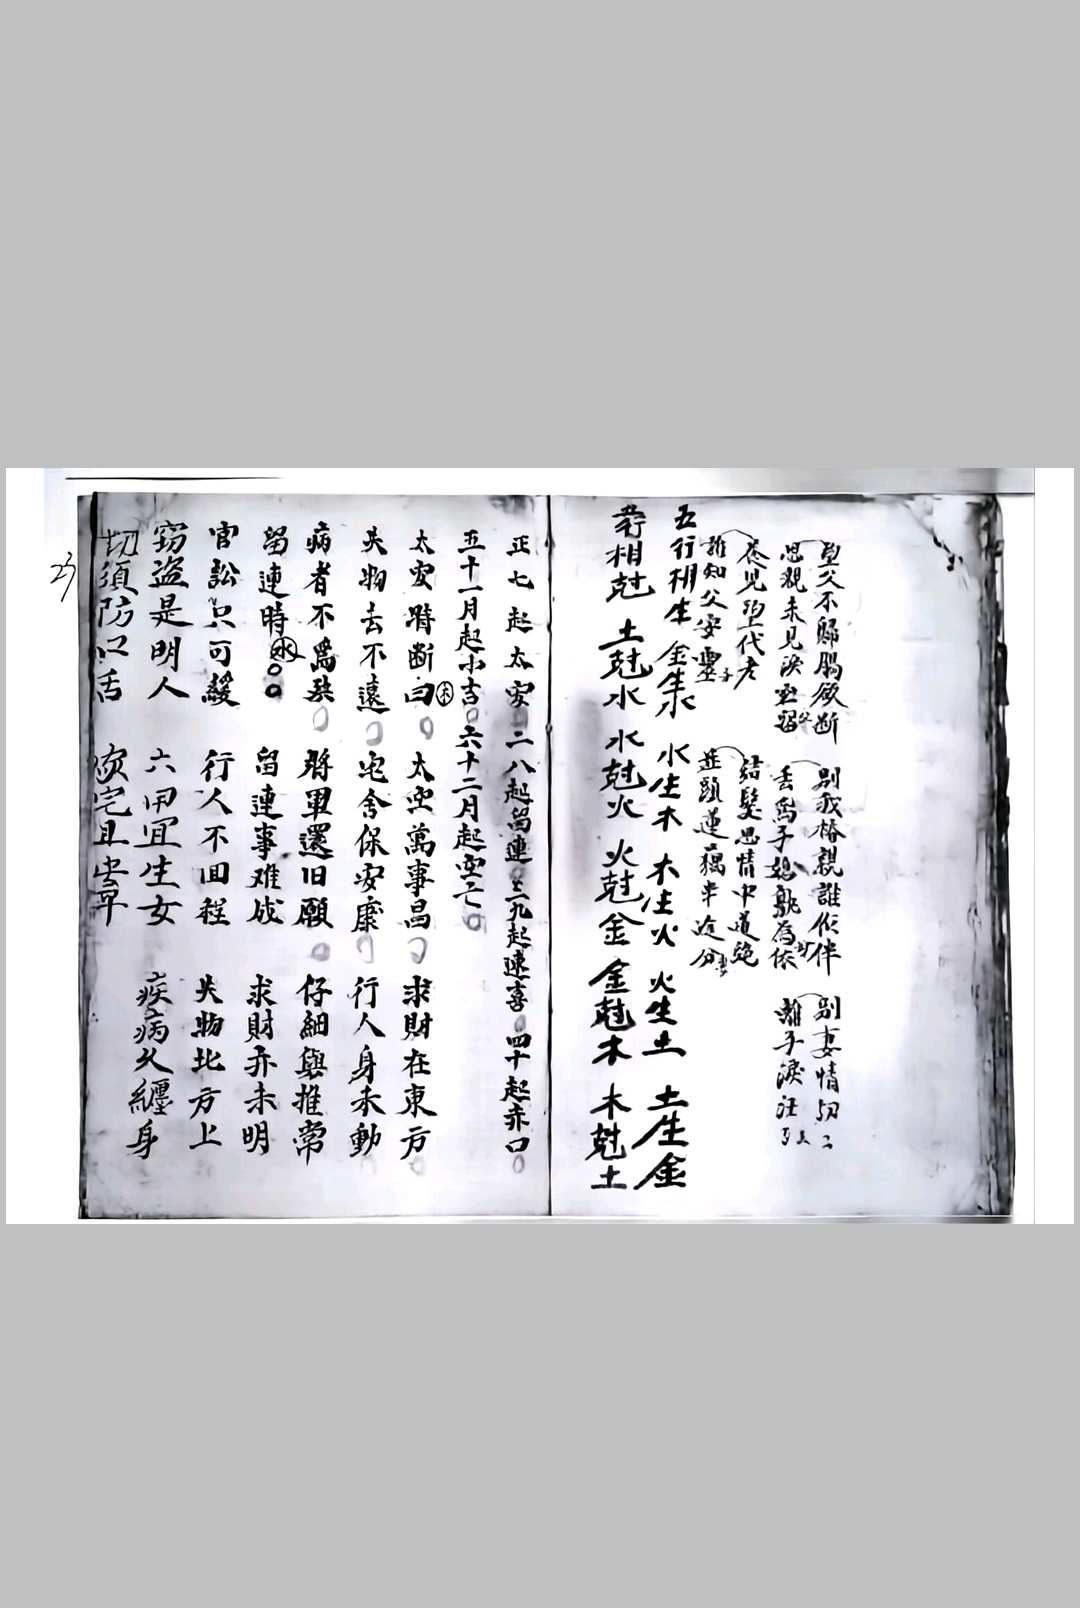 望父不歸腸欲斷 別我椿親誰依伴 別妻情切〻
思親未見淚 丟為子媳孰為依 離子淚汪
養兒望代老 結髮恩情中道絶
誰知父安靈 並頭蓮藕半途分
五行相生 金生水 水生木 木生火 火生土 土生金
五行相尅 土尅水 水尅火 火尅金 金尅木 木尅土
正七起太安 二八起留連 三九起速喜 四十起赤口
五十一月起小吉 六十二月起空亡
太安時断曰 木 太安萬事昌 求財在東方
失物去不遠 宅舍保安康 行人身未動
病者不為殃 將軍還旧願 仔細與推常
留連時 水 留連事难成 求財亦未明
官訟只可緩 行人不回程 失物北方上
切須防口舌
竊盗是明人 六甲宜生女 疾病久纒身